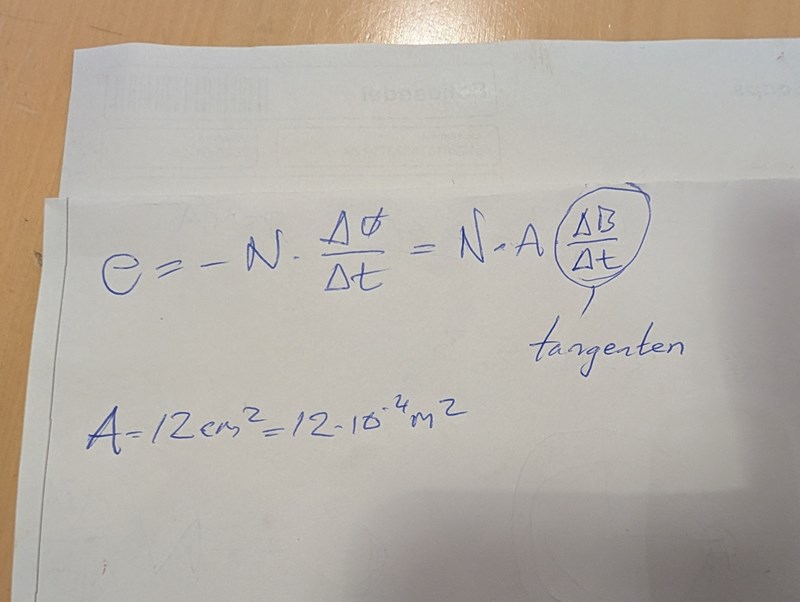 e = - N · ΔΦ/Δt = N · A ΔB/Δt
tangenten
A = 12 cm² = 12 · 10⁻⁴ m²